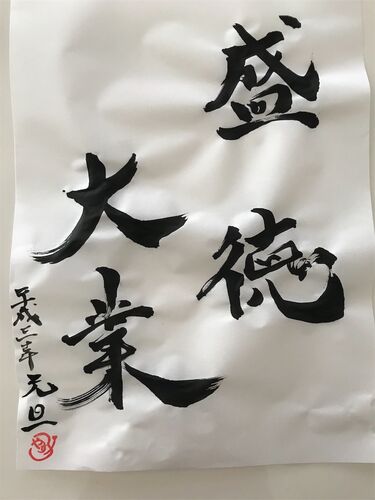 盛徳
大業
平成三年元旦